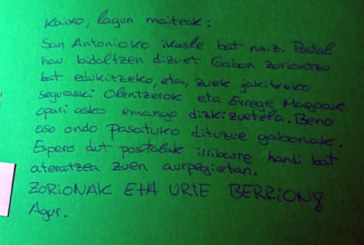 Kaixo, lagun maiteak:
San Antonioko ikasle bat naiz. Postal
hau bidaltzen dizuet Gabon zoriontsu
bat edukitzeko, eta, zuek jakitzeko
seguraski Olentzerok eta Errege Magoak
opari asko emango dizkizuetela. Beno
oso ondo pasatuko dituzue gabonak.
Espero dut postalak irribarre handi bat
ateratzea zuen aurpegietan.
ZORIONAK ETA URTE BERRION
Agur.